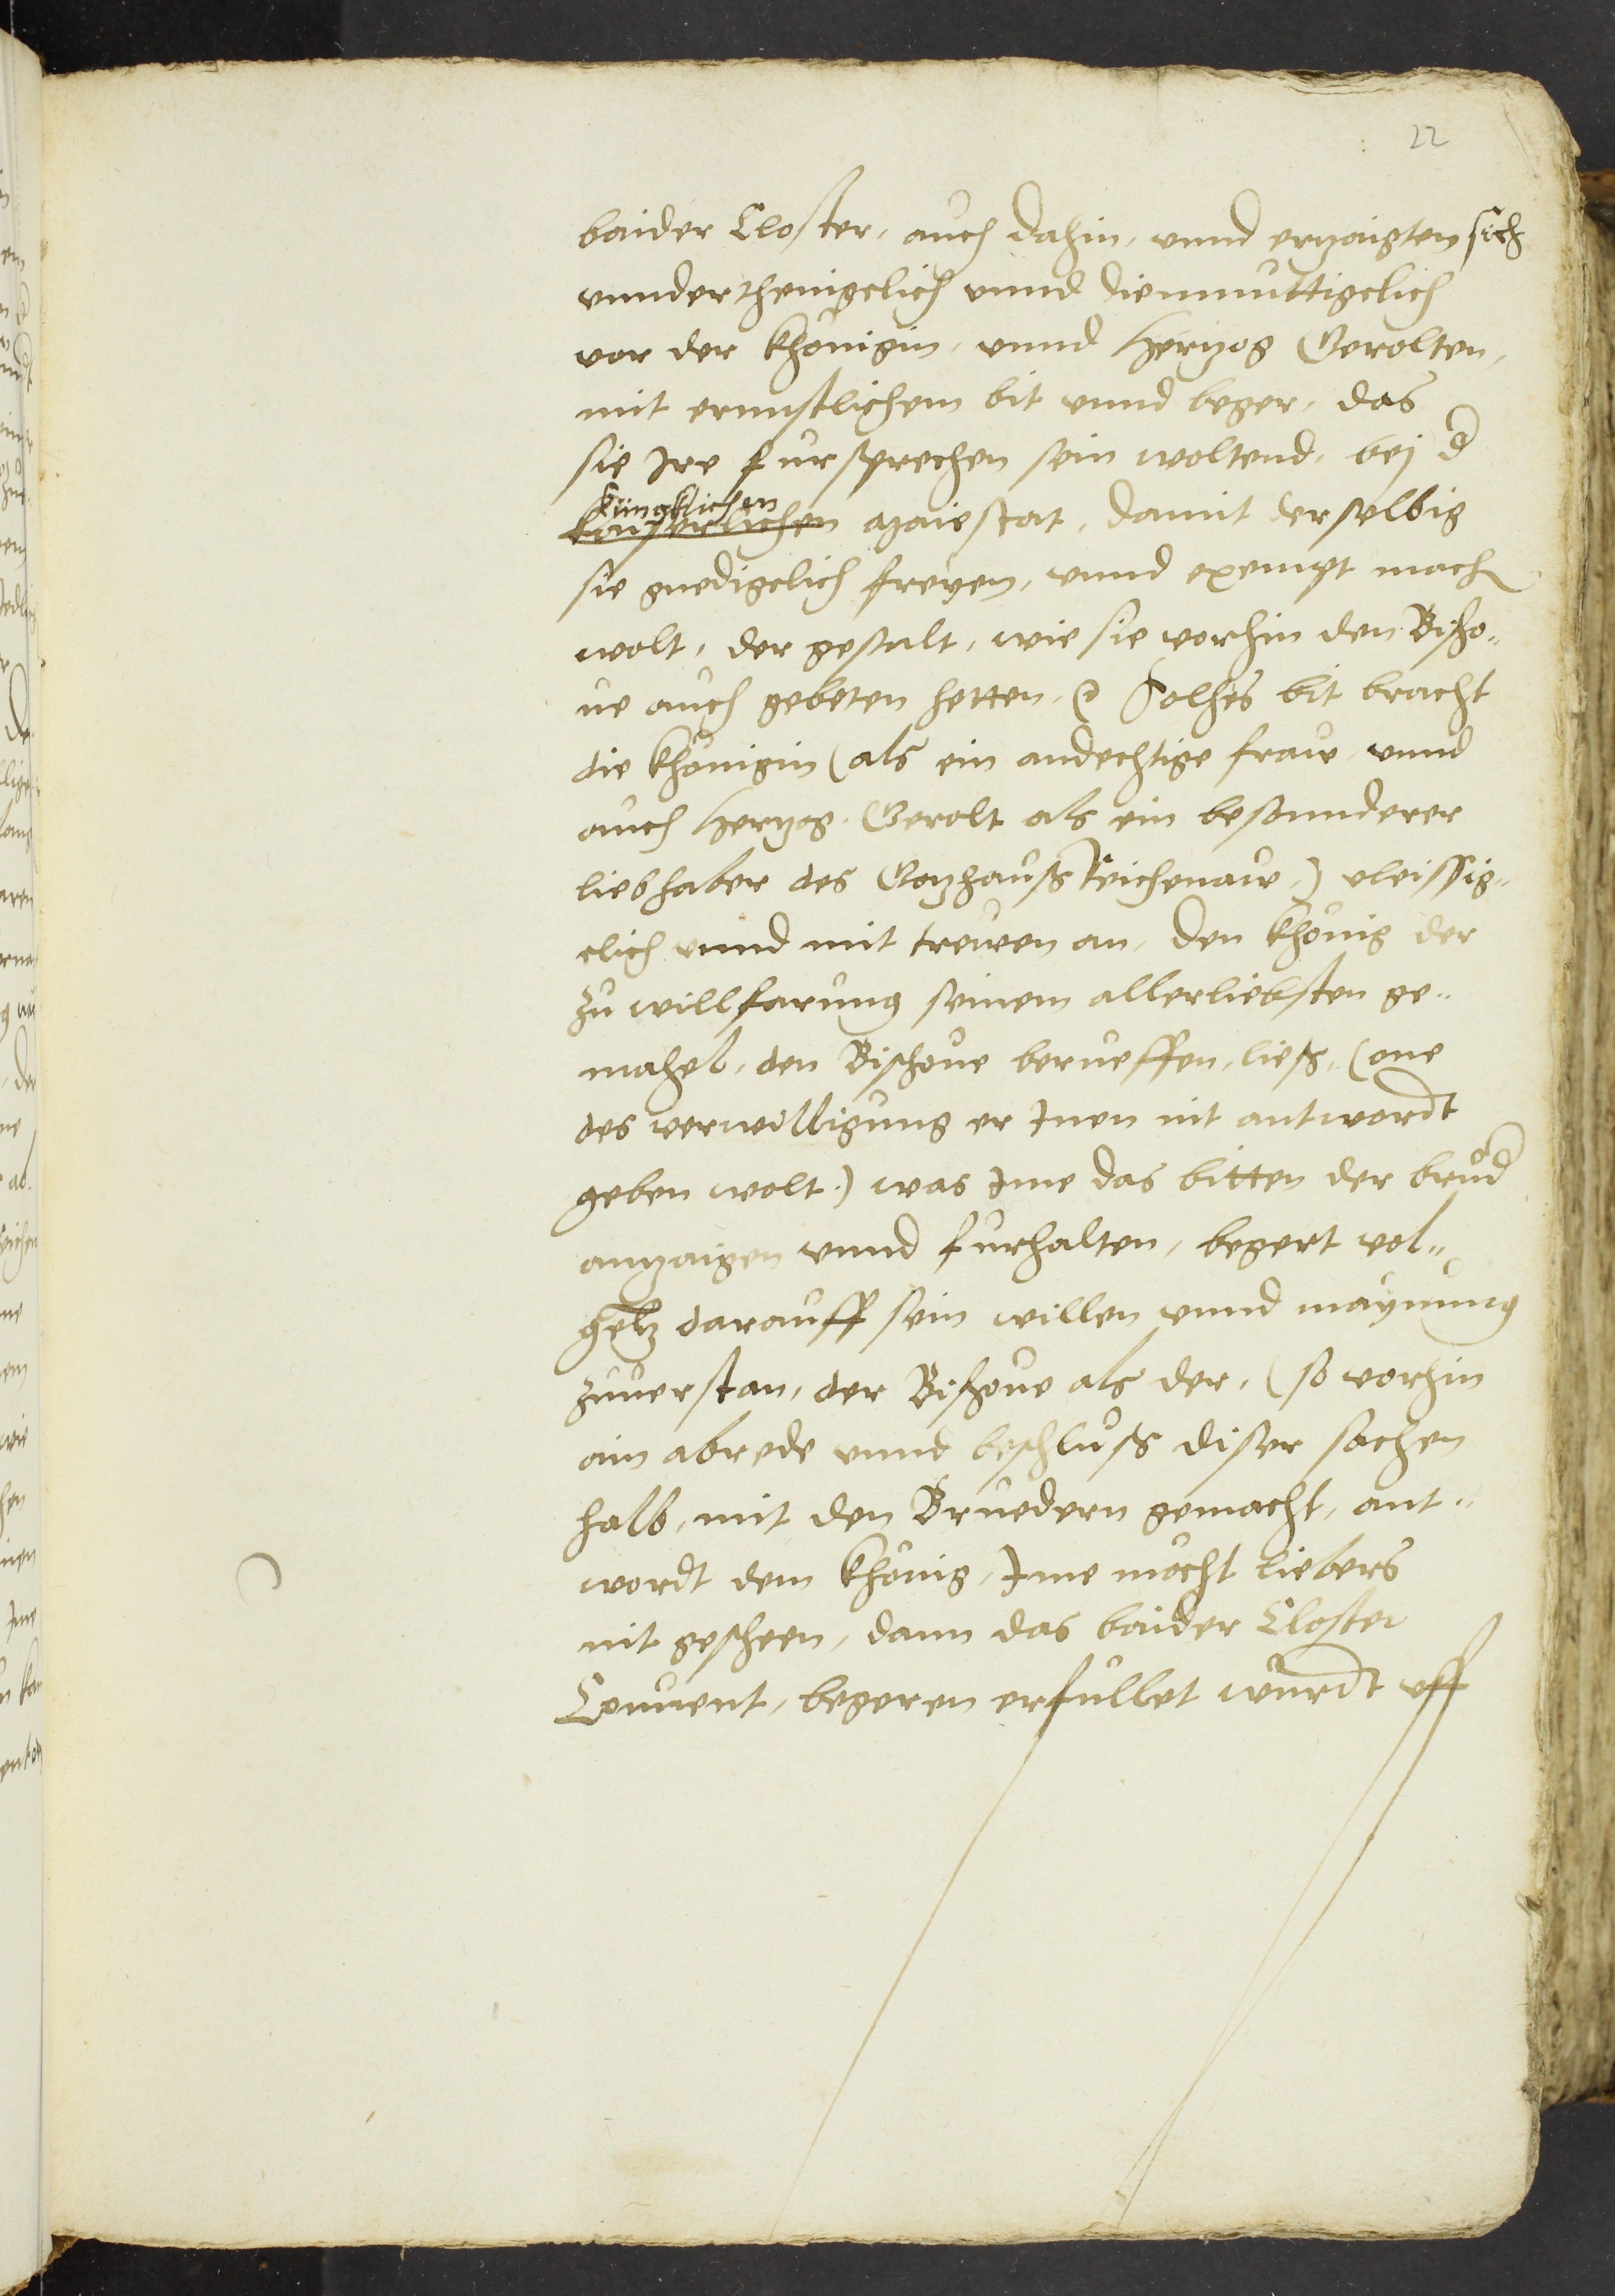 22
baider Closter, auch dahin, vnnd erzaigten sich
vnnderthenigclich vnnd diemuttigclich
vor der Khönigin, vnnd Hertzog Gerolten,
mit ernnstlichem bit vnnd beger, das
sie Ire fursprechen sein woltend, bej d
küngklichen
kayserlichen Maiestat, damit derselbig
sie gnedigclich freyen, vnnd exempt mach
wolt, der gestalt, wie sie vorhin den Bischo„
ue auch gebeten hetten. Solhes bit bracht
die Khönigin (als ein andechtige fraw, vnnd
auch Hertzog Gerolt als ein besonnderer
liebhaber des Gotzhauß Reichenaw,) vleissig„
clich vnnd mit trewen an, den Khönig der
zu willfarung seinem allerliebsten ge„
mahel, den Bischoue berueffen, ließ, (one
des verwilligung er Inen nit antwordt
geben wolt.) was Ime das bitten der brüd
anzaigen vnnd furhalten, begert vol„
gtz darauff sein willen vnnd maynung
zuuerstan, der Bischoue als der, (so vorhin
ain abrede vnnd beschluß diser sachen
halb, mit den Bruedern gemacht, ant„
wordt dem Khönig, Ime möcht liebers
nit gescheen, dann das baider Closter
Conuent, begeren erfüllet würdt vff